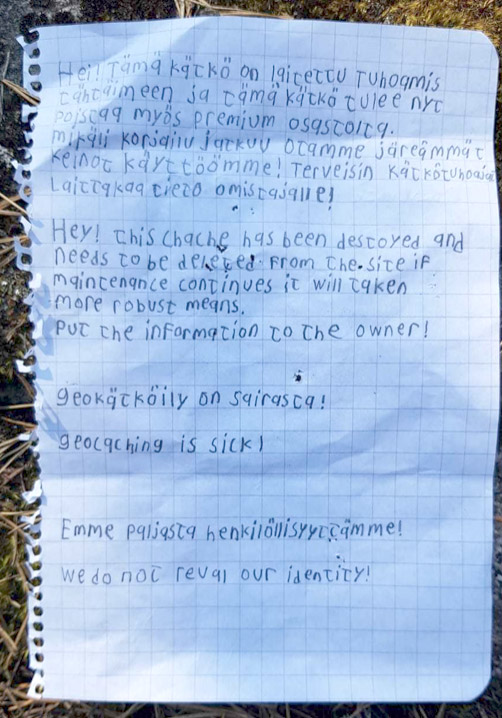 Hei! Tämä kätkö on laitettu tuhoamis
tähtäimeen ja tämä kätkö tulee nyt
poistaa myös premium osastolta.
mikäli korjailu jatkuu otamme järeämmät
keinot käyttöömme! Terveisin kätkötuhoaja
Laittakaa tieto omistajalle!
Hey! this chache has been destoyed and
needs to be deleted from the site if
maintenance continues it will taken
more robust means.
Put the information to the owner!
geokätköily on sairasta!
geocaching is sick!
Emme paljasta henkilöllisyyttämme!
we do not reval our identity!